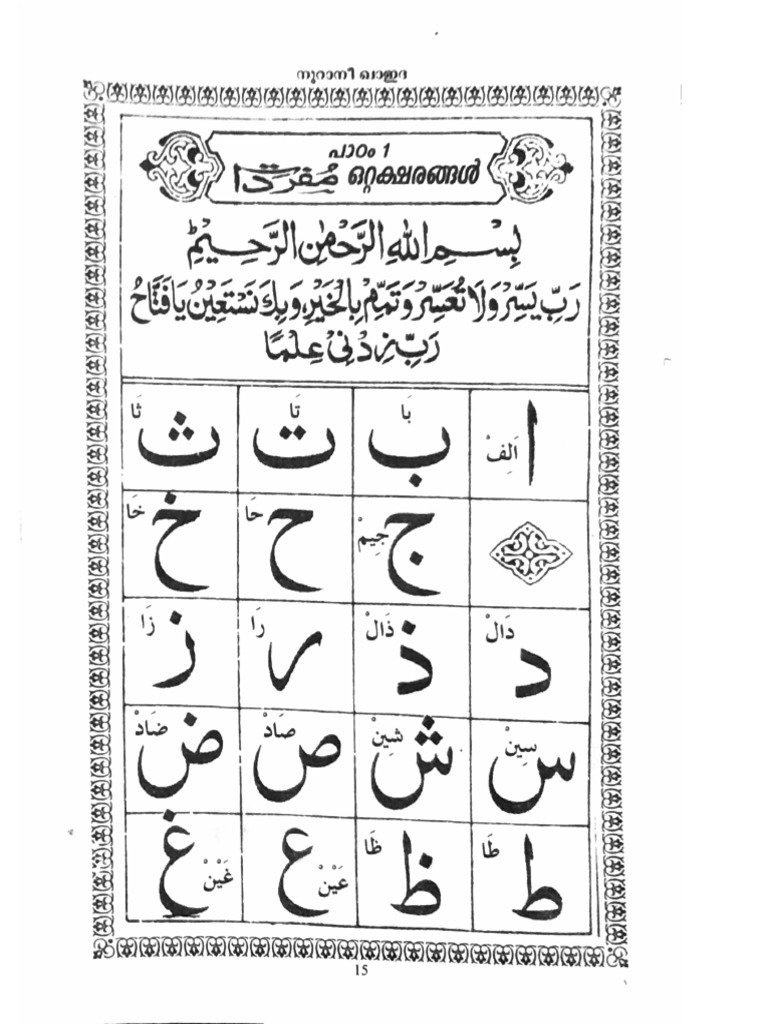 നൂറാനീ ഖാഇദ
പാഠം 1
ഒറ്റക്ഷരങ്ങൾ مفردات
بِسْمِ اللهِ الرَّحْمٰنِ الرَّحِيْمِ
رَبِّ يَسِّرْ وَلَا تُعَسِّرْ وَتَمِّمْ بِالْخَيْرِ، وَبِكَ نَسْتَعِيْنُ يَا فَتَّاحُ
رَبِّ زِدْنِيْ عِلْمًا
ا اَلِفْ ب بَا ت تَا ث ثَا
ج جِيْمْ ح حَا خ خَا
د دَالْ ذ ذَالْ ر رَا ز زَا
س سِيْنْ ش شِيْنْ ص صَادْ ض ضَادْ
ط طَا ظ ظَا ع عَيْنْ غ غَيْنْ
15